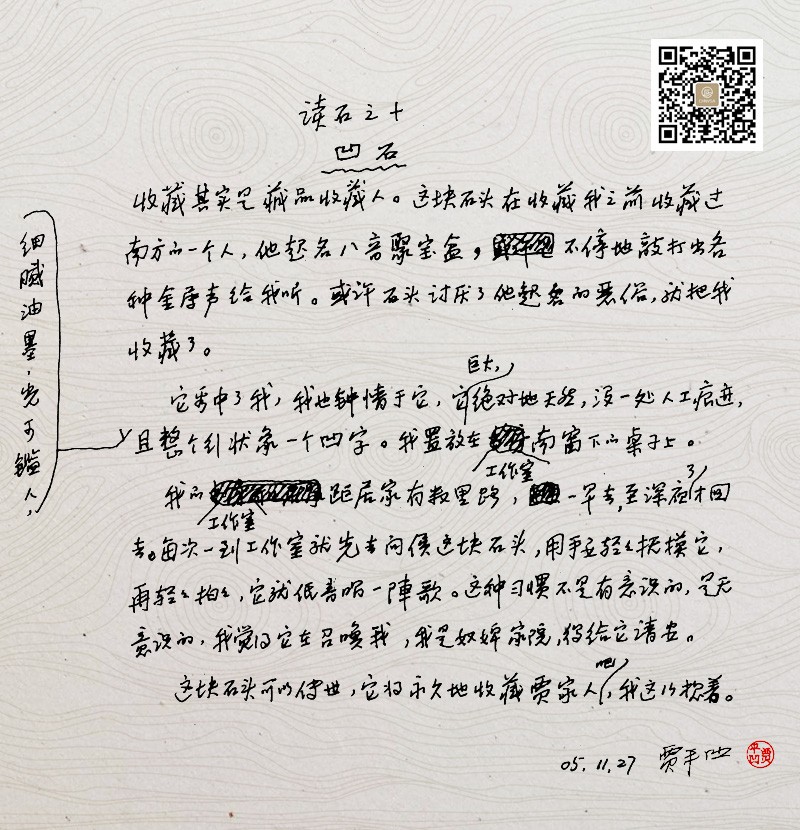 读石之十
凹石
收藏其实是藏品收藏人。这块石头在收藏我之前收藏过
南方的一个人,他起名八音聚宝盆,不停地敲打出各
种金属声给我听。或许石头讨厌了他起名的恶俗,就把我
收藏了。
它看中了我,我也钟情于它,它巨大,绝对地天然,没一处人工痕迹,
细腻油墨,光可鑑人,
且整个形状象一个凹字。我置放在工作室南窗下的桌子上。
我的工作室距居家有数里路,一早去,至深夜了才回
去。每次一到工作室就先去问候这块石头,用手轻轻抚摸它,
再轻轻拍拍,它就低音唱一阵歌。这种习惯不是有意识的,是无
意识的,我觉得它在召唤我,我是奴婢家院,得给它请安。
这块石头可以传世,它将永久地收藏贾家人吧,我这么想着。
05.11.27 贾平凹
贾平凹